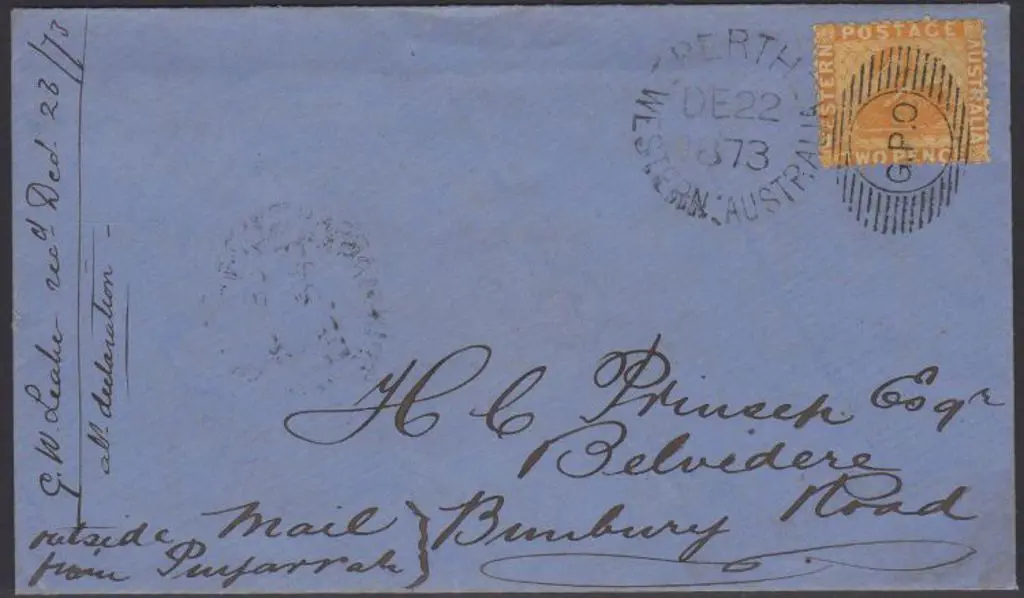 G. W. Leake recd Ded. 23/73
abt declaration -
PERTH
DE 22
1873
WESTERN AUSTRALIA
POSTAGE
WESTERN
AUSTRALIA
TWO PENC
G.P.O
H C Prinsep Esqr
Belvidere
Bunbury Road
outside Mail
from Pinjarrah